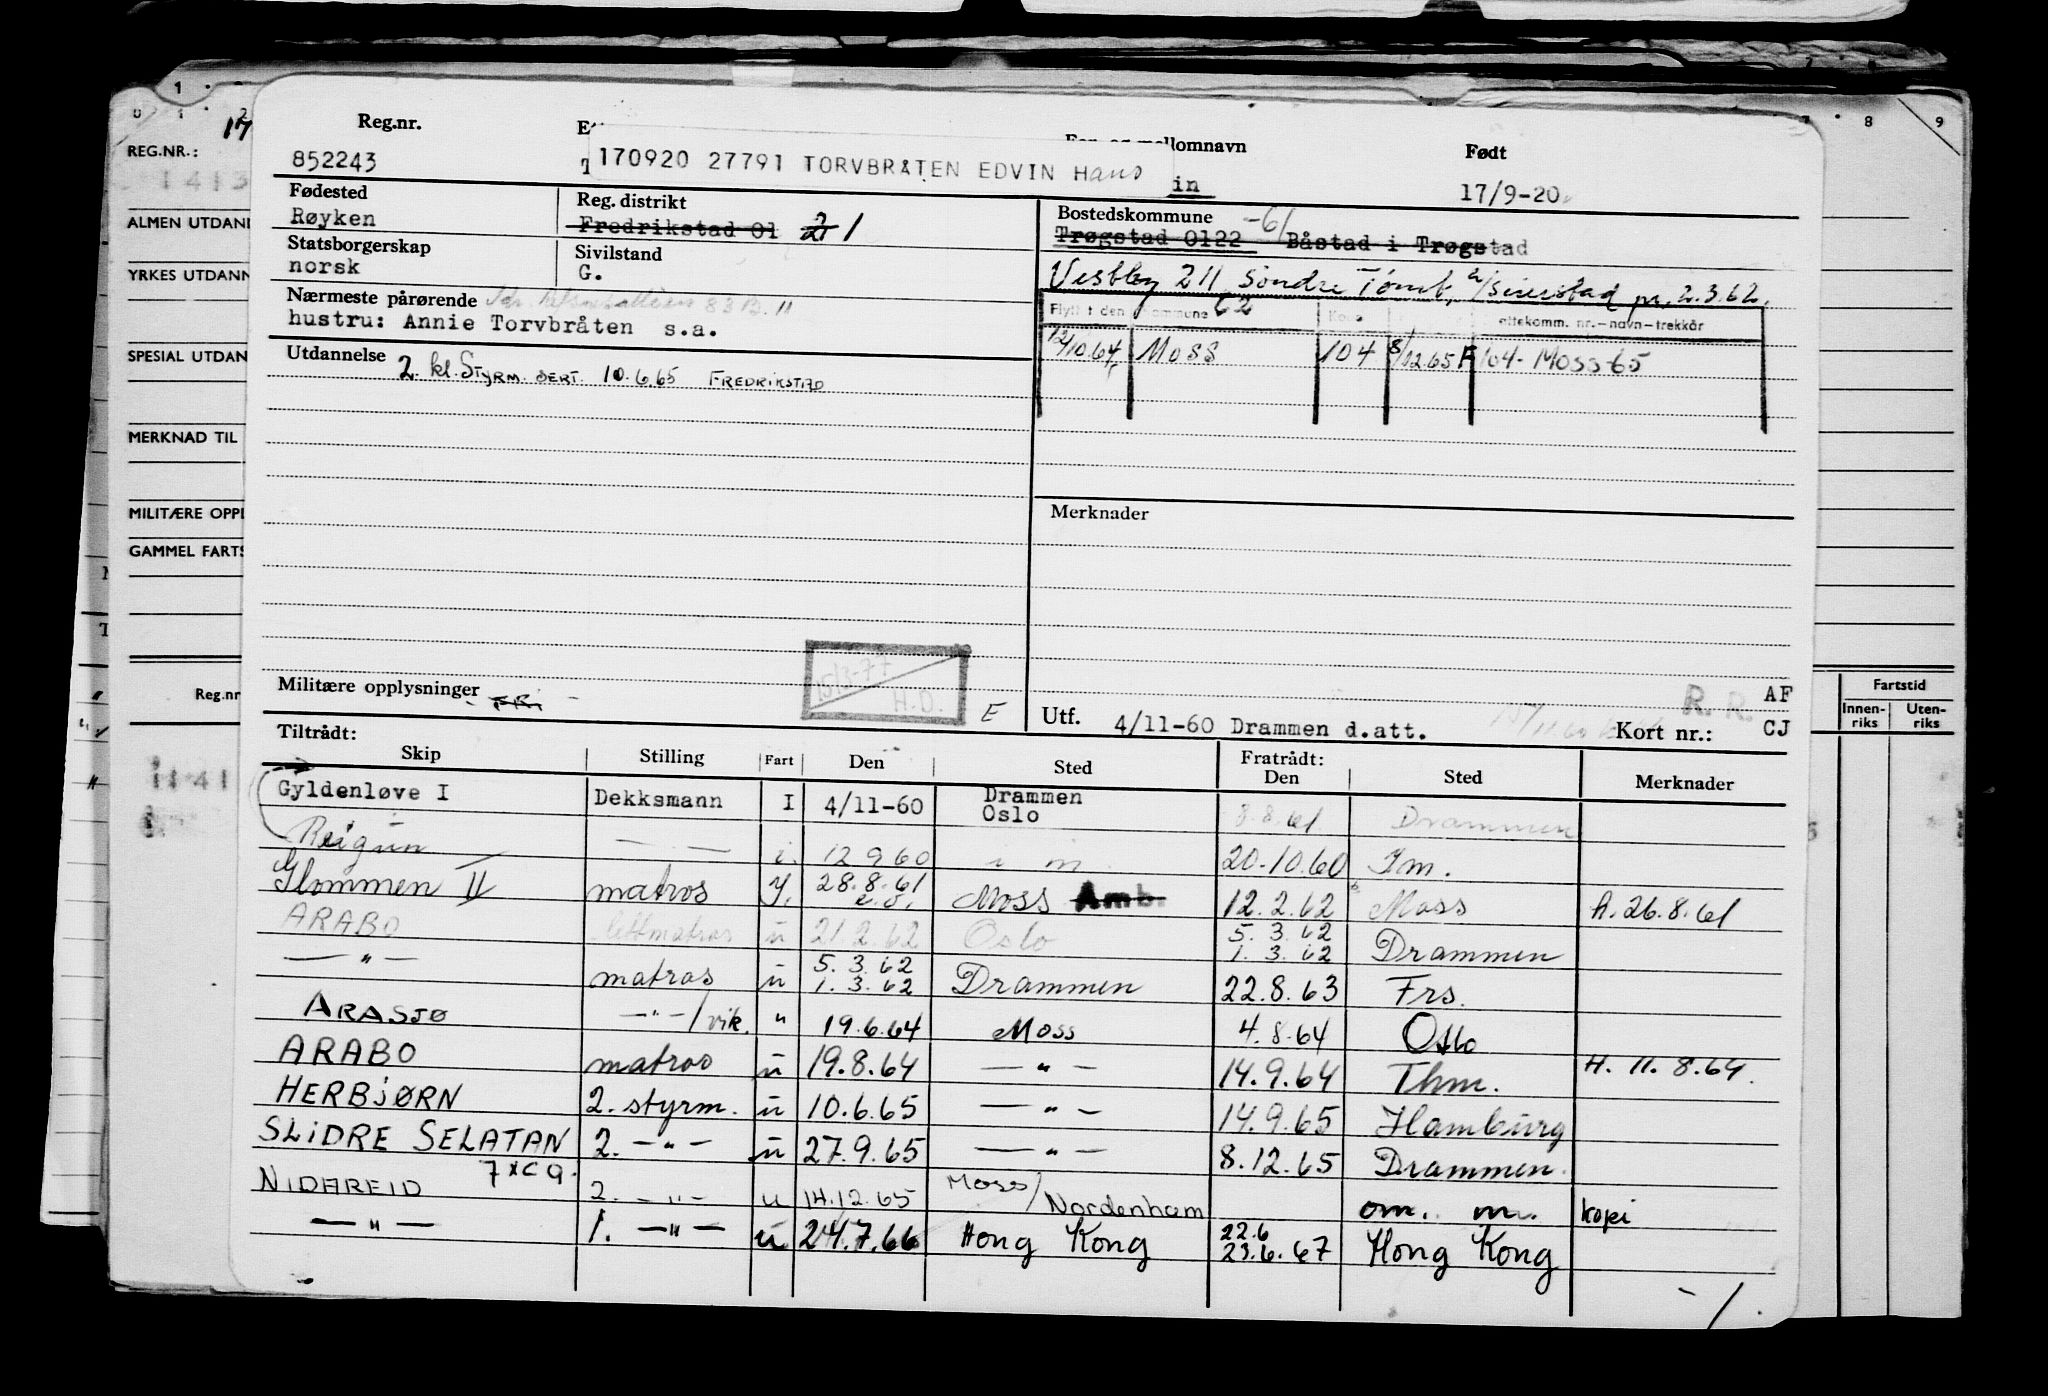 Reg.nr.
852243
170920 27791 TORVBRÅTEN EDVIN Hans
mellomnavn
in
Født
17/9-20
Fødested
Røyken
Reg. distrikt
Fredrikstad 01 21 1
Bostedskommune
-61
Trøgstad 0122 Båstad i Trøgstad
Statsborgerskap
norsk
Sivilstand
G.
Vestby 211 Søndre Tomb, pr. 2.3.62.
Nærmeste pårørende
hustru: Annie Torvbråten s.a.
Flytt t den kommune 62 ettekomm. nr.-navn-trekkår
12/10.64 Moss 104 8/12.65 F 104 - Moss 65
Utdannelse
2. kl. Styrm. sert. 10.6.65 FREDRIKSTAD
Merknader
Militære opplysninger
15/3-77
H.O.
E
R. R. AF
Utf. 4/11-60 Drammen d.att.
Kort nr.: CJ
Tiltrådt:
Skip Stilling Fart Den Sted Fratrådt: Den Sted Merknader
Gyldenløve I Dekksmann I 4/11-60 Drammen Oslo 8.8.61 Drammen
Reigun — — i. 12 9 60 i m 20.10.60 Im.
Glommen II matros I. 28.8.61 Moss Amb. 12.2.62 Moss A. 26.8.61
ARABO lettmatros u 21.2.62 Oslo 5.3.62 1.3.62 Drammen
— " — matros u 5.3.62 1.3.62 Drammen 22.8.63 Frs.
ARASJØ — " — / vik. " 19.6.64 Moss 4.8.64 Oslo
ARABO matros u 19.8.64 — " — 14.9.64 Thm. H. 11.8.64.
HERBJØRN 2. styrm. u 10.6.65 — " — 14.9.65 Hamburg
SLIDRE SELATAN 2. — " — u 27.9.65 — " — 8.12.65 Drammen.
7XC9.
NIDAREID 2. — " — u 14.12.65 Moss/Nordenham om. m. kopi
— " — 1. — " — u 24.7.66 Hong Kong 22.6 23.6.67 Hong Kong
REG.NR.:
ALMEN UTDANN
YRKES UTDANN
SPESIAL UTDAN
MERKNAD TIL
MILITÆRE OPPL
GAMMEL FARTS
Reg.nr
Fartstid
Innen-riks Uten-riks